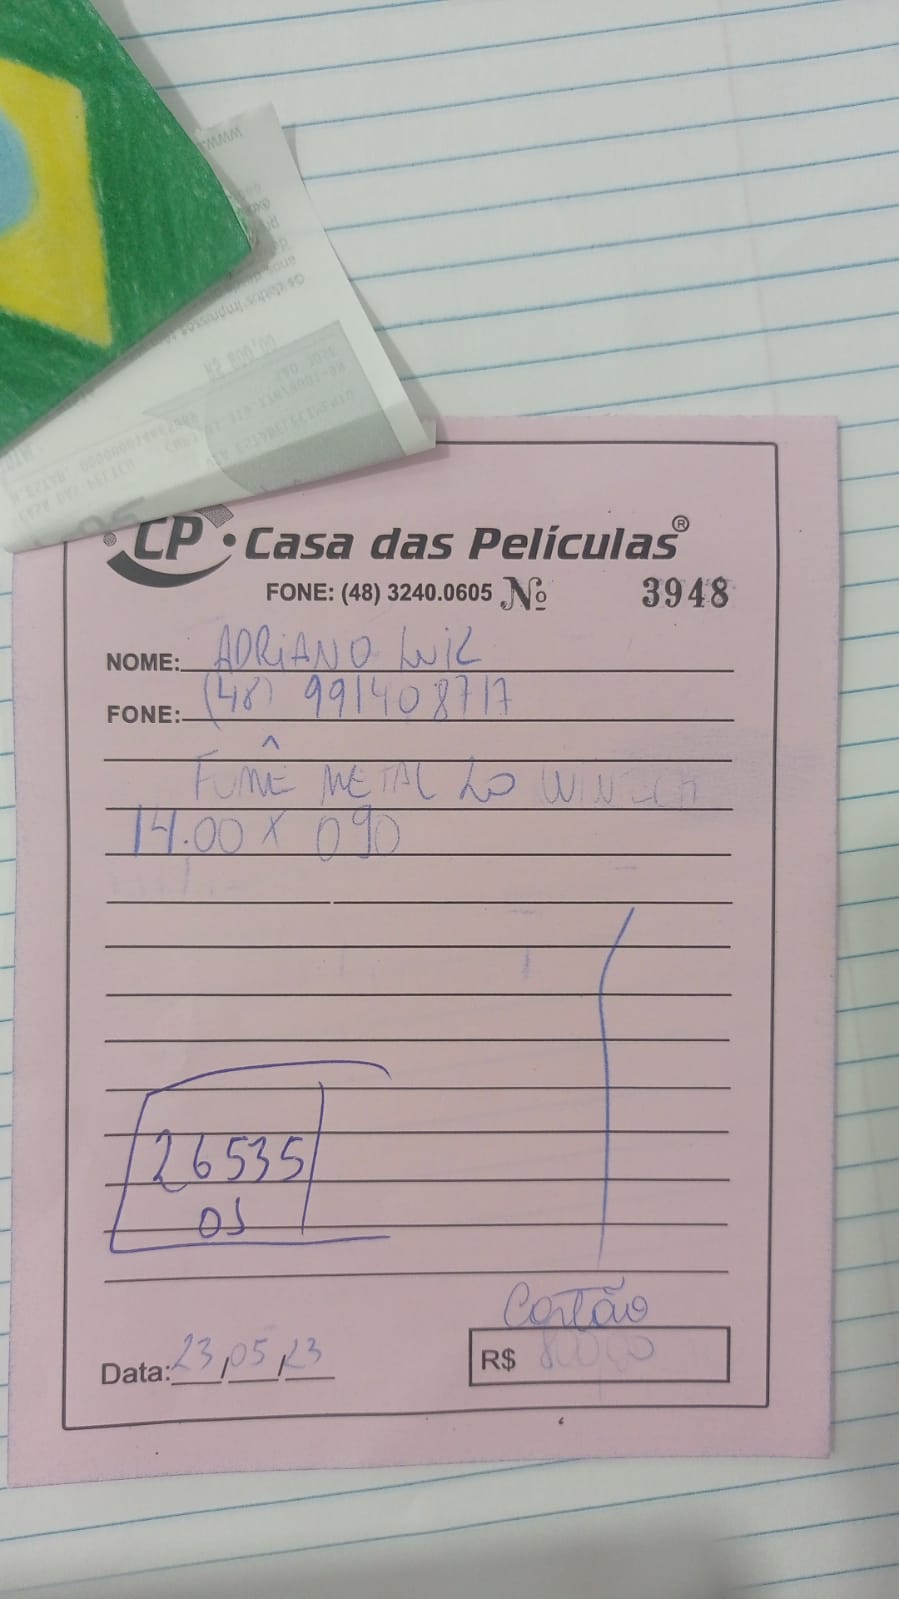 CP Casa das Películas®
FONE: (48) 3240.0605 Nº 3948
NOME: ADRIANO LUIZ
FONE: (48) 991408717
FUMÊ METAL 20
14.00 X 090
26535
OS
Cartão
Data: 23/05/23 R$ 800,00